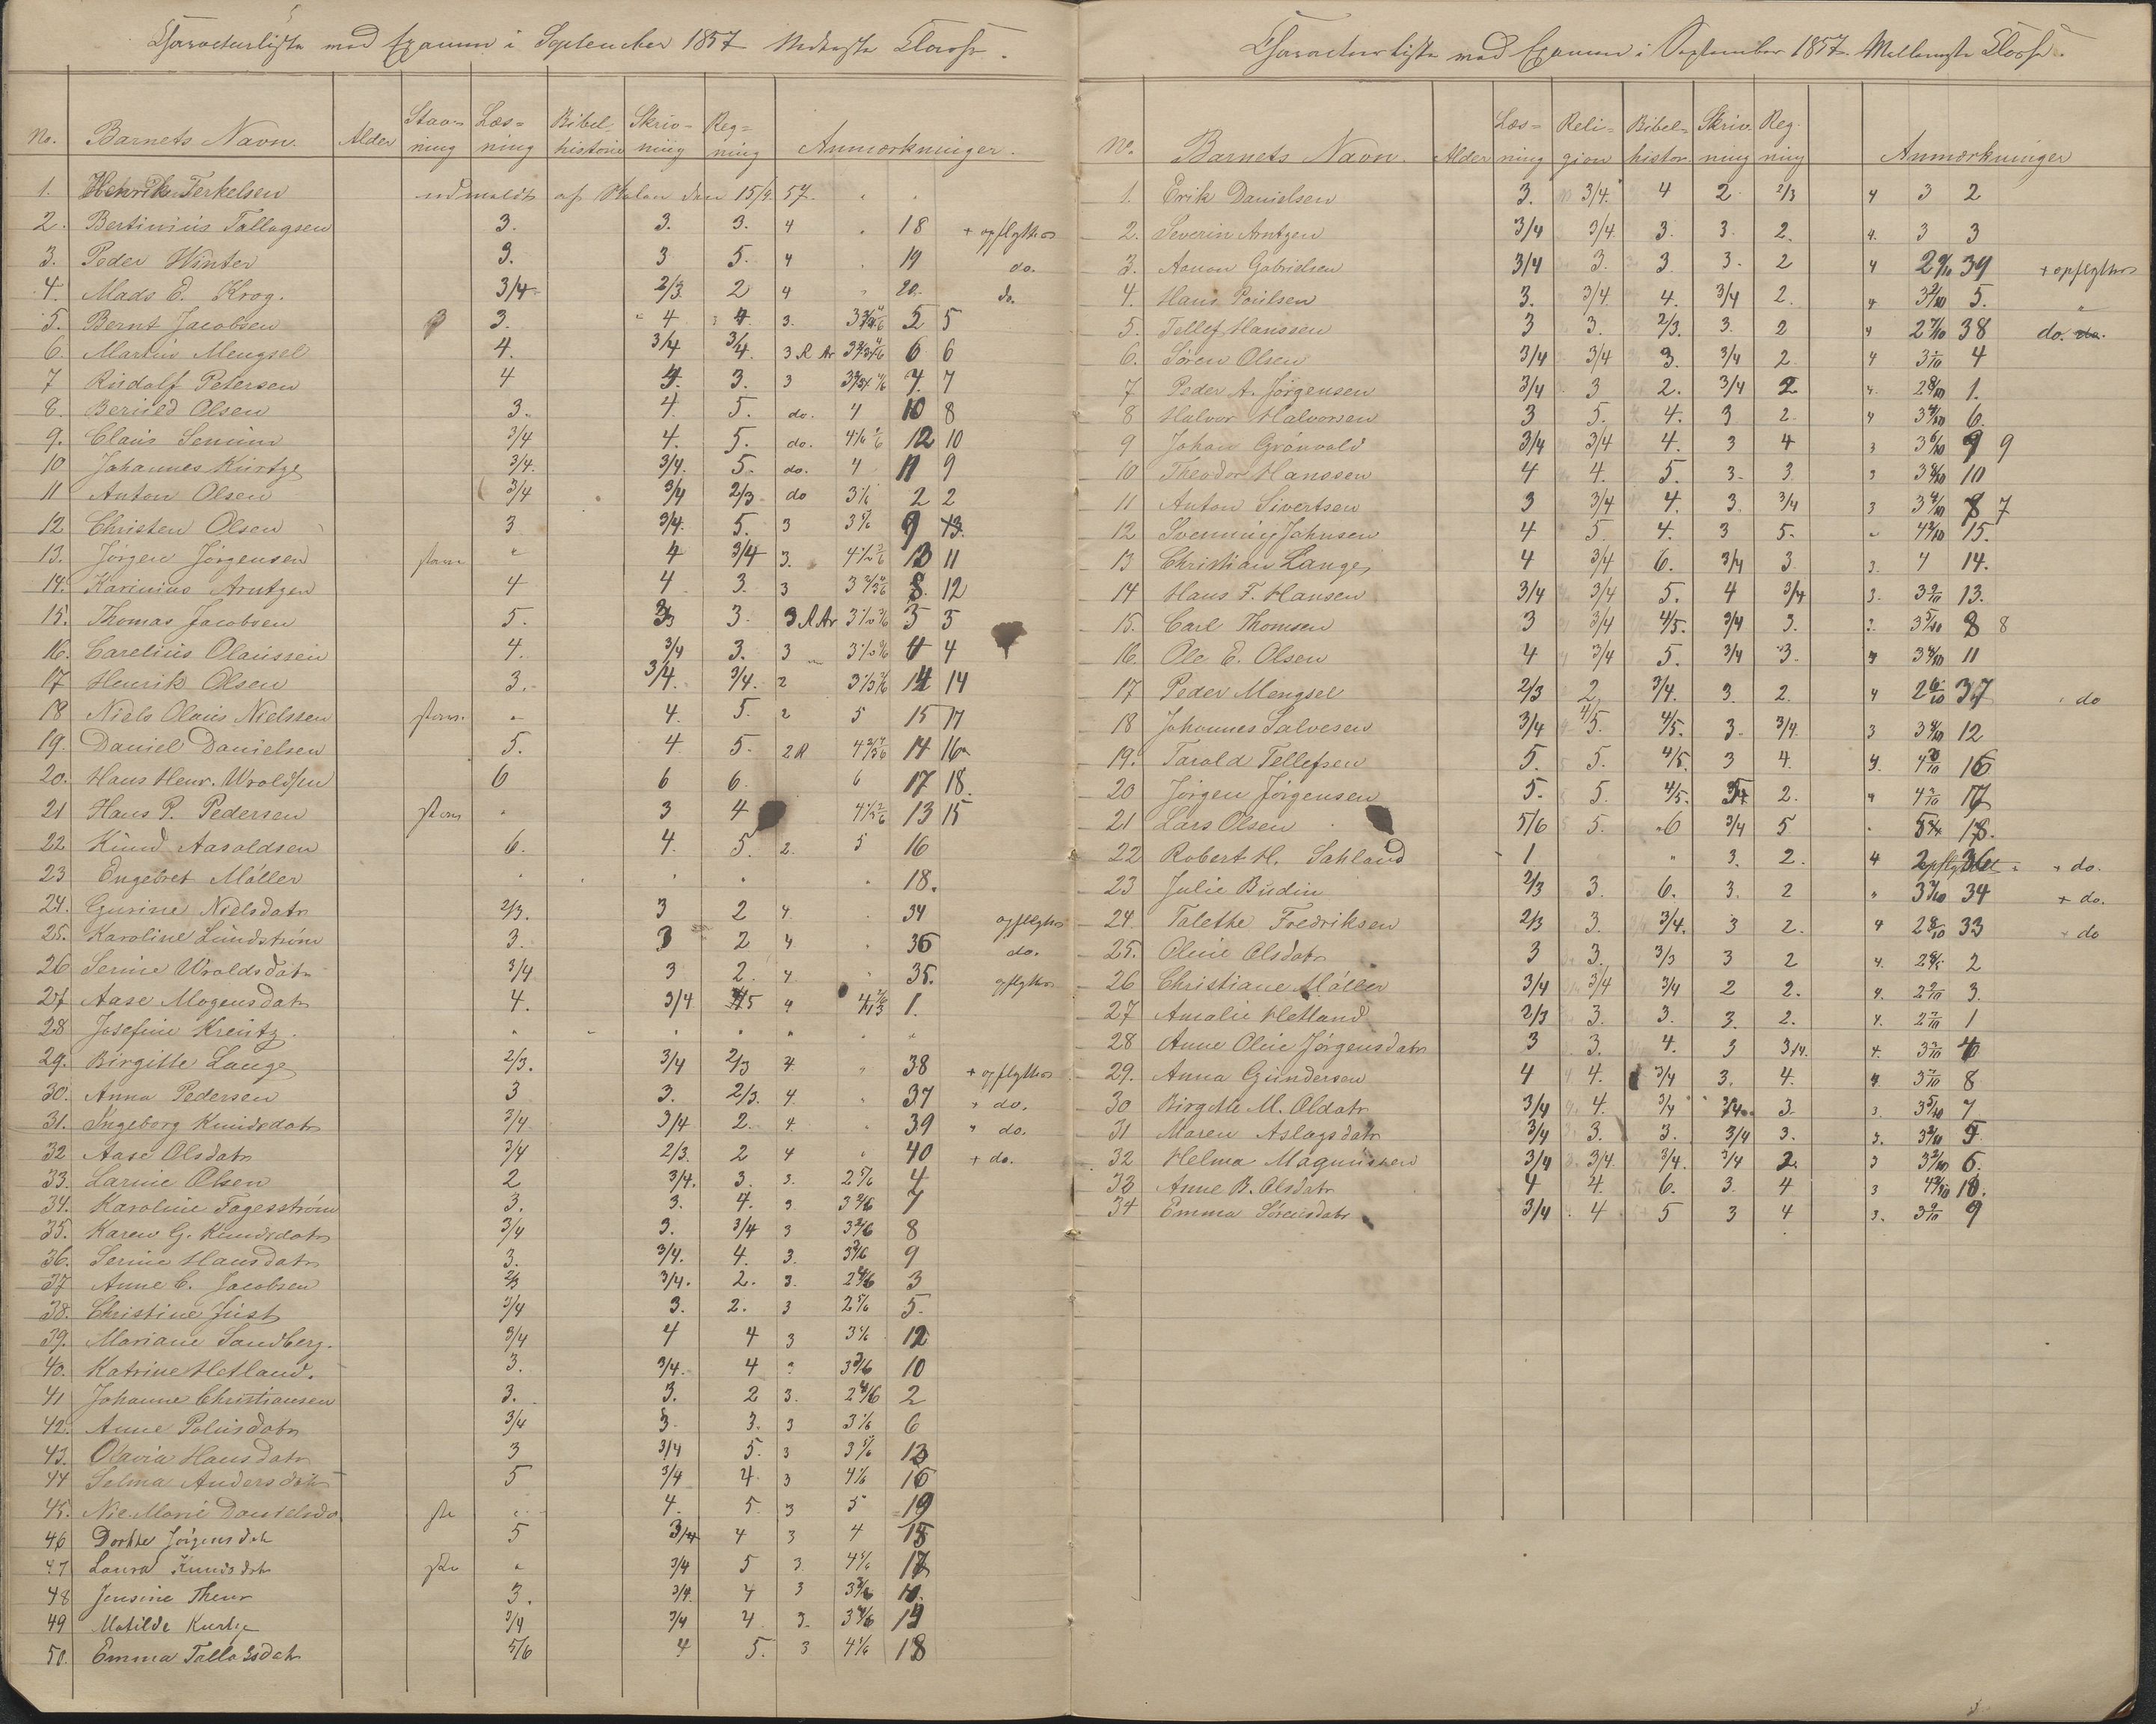 Characterliste med Examen i September 1857 Nederste Classe.
No. Barnets Navn. Alder Stavning Læsning Bibelhistorie Skrivning Regning Anmærkninger.
1. Henrik Terkelsen udmeldt af Skolen den 15/9 57.
2. Bertinius Tallagsen 3. 3. 3. 4 18 + opflyttes
3. Peder Winter 3. 3 5. 4 19 do.
4. Mads E. Krog. 3/4 2/3 2 4 20 do.
5. Bernt Jacobsen 3. 4 4. 3. 5 5
6. Martin Mengsel 4. 3/4 3/4. 3 R Ar 6 6
7 Rudolf Petersen 4 4. 3. 3 7. 7
8. Berüld Olsen 3. 4. 5. do. 4 10 8
9. Claus 3/4 4. 5. do. 12 10
10 Johannes Kurtze 3/4. 3/4. 5. do. 4 11 9
11 Anton Olsen 3/4 3/4 2/3 do 3 1/6 2 2
12 Christen Olsen 3 3/4. 5. 3 9 13.
13. Jørgen Jørgensen stav 4 3/4 3. 13 11
14. Karinius Arntzen 4 4 3. 3 8. 12
15. Thomas Jacobsen 5. 3. 3 R Ar 3 3
16. Carelius Olaussen 4. 3/4 3. 3 4 4
17 Henrik Olsen 3. 3/4. 3/4. 2 14 14
18 Niels Olaus Nielssen stav. 4. 5. 2 5 15 17
19. Daniel Danielsen 5. 4 5. 2 R 14 16
20. Hans Henr. Wroldsen 6 6 6. 6 17 18.
21 Hans P. Pedersen stav 3 4 13 15
22 Knud Aaroldsen 6. 4. 5. 2. 5 16
23 Engebret Møller 18.
24. Gurine Nielsdatr 2/3. 3 2 4. 34 opflyttes
25. Karoline Lundstrøm 3. 3 2 4 36 do.
26 Serine Wroldsdatr 3/4 3 2. 4. 35. opflyttes
27 Aase Mogensdatr 4. 3/4 4 1.
28 Josefine Kreutz.
29. Birgitte Lange 2/3. 3/4 2/3 4. 38 + opflyttes
30. Anna Pedersen 3 3. 2/3. 4. 37 do.
31. Ingeborg Knudsdatr 3/4 3/4 2. 4. 39 " do.
32 Aase Olsdatr 3/4 2/3. 2 4 40 + do.
33. Larine Olsen 2 3/4. 3. 3. 2 5/6 4
34. Karoline Fagerstrøm 3. 3. 4. 3. 3 2/6 7
35. Karen G. Knudsdatr 3/4 3. 3/4 3 3 2/6 8
36. Serine Hansdatr 3. 3/4. 4. 3. 3 2/6 9
37 Anne C. Jacobsen 2/3 3/4. 2. 3. 2 4/6 3
38. Christine Just 3/4 3. 2. 3 2 5/6 5.
39. Mariane Sandberg. 3/4 4 4 3 12
40. Katrine Hetland. 3. 3/4. 4 3 3 3/6 10
41 Johanne Christiansen 3. 3. 2 3. 2 4/6 2
42. Anne Poulsdatr 3/4 3. 3. 3 3 1/6 6
43. Olavia Hansdatr 3 3/4 5. 3 13
44 Selma Andersdatr 5 3/4 4. 3 4 1/6 16
45. Nie. Marie Danielsda. sta 4. 5. 3 5 19
46 Dorthe Jörgensdatr 5 3/4 4 3 4 15
47 Laura Knudsdatr sta 3/4 5 3. 17
48 Jensine Theur 3. 3/4. 4 3 11.
49 Matilde Kurtze 3/4 3/4 4. 3. 14
50. Emma Tallaksdatr 5/6 4 5. 3 4 1/6 18
Characterliste med Examen i September 1857. Mellemste Classe.
No. Barnets Navn. Alder Læsning Religion Bibelhistor. Skrivning Regning Anmærkninger
1. Erik Danielsen 3. 3/4. 4 2. 2/3 4 3 2
2. Severin Arntzen 3/4 3/4. 3. 3. 2. 4. 3 3
3. Aanon Gabrielsen 3/4 3. 3 3. 2 4 39 + opflyttes
4. Hans Poulsen 3. 3/4. 4. 3/4 2. 4 5. "
5. Tellef Hanssen 3 3. 2/3. 3. 2 4 38 do.
6. Søren Olsen 3/4 3/4 3. 3/4 2 4 4
7 Peder A. Jørgensen 3/4 3 2. 3/4 2 4. 1.
8 Halvor Halvorsen 3 5. 4. 3 2. 4 6.
9 Johan Grönvold 3/4 3/4 4. 3 4 3 9 9
10 Theodor Hanssen 4 4. 5. 3. 3 3 10
11 Anton Sivertsen 3 3/4 4. 3. 3/4 3 8 7
12 Svenning Johnsen 4 5. 4. 3 5. 15.
13 Christian Lange 4 3/4 6. 3/4 3. 3. 4 14.
14 Hans F. Hansen 3/4 3/4 5. 4 3/4 3. 13.
15. Carl Thomsen 3 3/4 4/5. 3/4 3. 8 8
16. Ole E. Olsen 4 3/4 5. 3/4 3. 11
17 Peder Mengsel 2/3 2 3/4. 3. 2. 4 37 do
18 Johannes Salvesen 3/4 4/5. 4/5. 3. 3/4 3 12
19. Tarald Tellefsen 5. 5. 4/5. 3 4. 4. 16
20 Jørgen Jørgensen 5. 5. 4/5. 2. 4 17
21 Lars Olsen 5/6 5. 6 3/4 5 18.
22 Robert H. Sahland 1 " 3. 2. 4 2 36 + do.
23 Julie Budin 2/3 3. 6. 3. 2 34 + do.
24 Talethe Fredriksen 2/3 3. 3/4. 3 2. 4 33 + do
25. Oline Olsdatr 3 3. 3 2 4. 2
26 Christiane Møller 3/4 3/4 3/4 2 2. 4. 3.
27 Amalie Hetland 2/3 3. 3. 3. 2. 4. 1
28 Anne Oline Jørgensdatr 3 3. 4. 3 3/4. 4.
29. Anna Gundersen 4 4. 3/4 3. 4. 8
30 Birgitte M. Oldatr 3/4 4. 3/4 3/4. 3. 3. 7
31 Maren Aslagsdatr 3/4 3. 3. 3/4 3. 3. 5
32 Helma Magnussen 3/4 3/4 3/4. 3/4 2. 3 6.
33 Anne B. Olsdatr 4 4. 6. 3. 4 3 10.
34 Emma Sörensdatr 3/4 4 5 3 4 3. 9